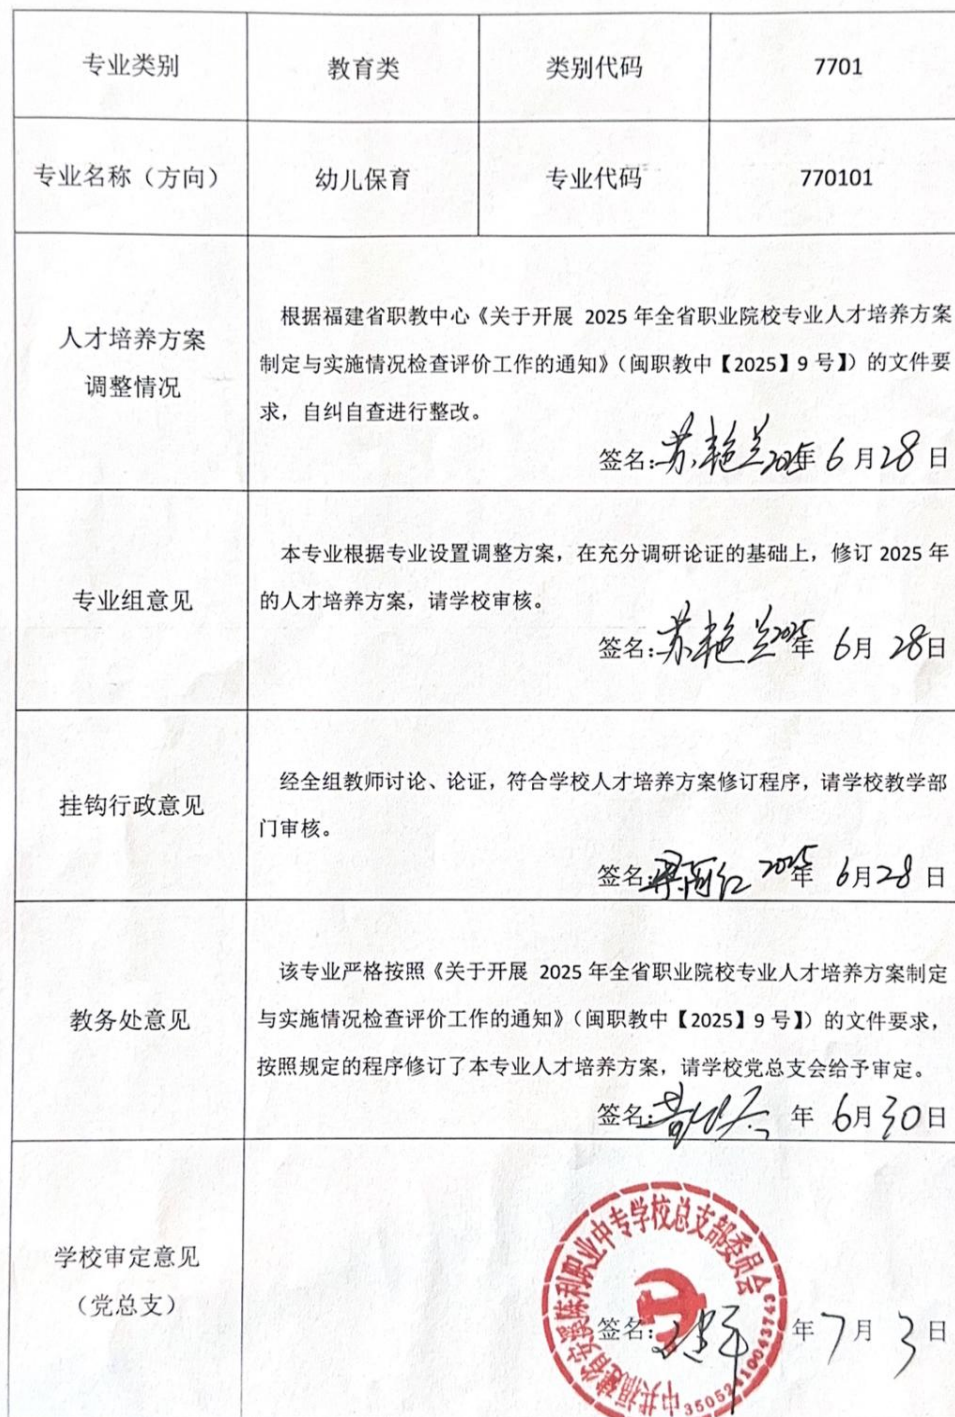 专业类别 教育类 类别代码 7701
专业名称（方向） 幼儿保育 专业代码 770101
人才培养方案
调整情况
根据福建省职教中心《关于开展 2025 年全省职业院校专业人才培养方案
制定与实施情况检查评价工作的通知》（闽职教中【2025】9 号】）的文件要
求，自纠自查进行整改。
签名：苏艳兰 2025年 6 月 28 日
专业组意见
本专业根据专业设置调整方案，在充分调研论证的基础上，修订 2025 年
的人才培养方案，请学校审核。
签名：苏艳兰 2025年 6 月 28 日
挂钩行政意见
经全组教师讨论、论证，符合学校人才培养方案修订程序，请学校教学部
门审核。
签名： 2025年 6 月 28 日
教务处意见
该专业严格按照《关于开展 2025 年全省职业院校专业人才培养方案制定
与实施情况检查评价工作的通知》（闽职教中【2025】9 号】）的文件要求，
按照规定的程序修订了本专业人才培养方案，请学校党总支会给予审定。
签名： 年 6 月 30 日
学校审定意见
（党总支）
中共福建省安溪陈利职业中专学校总支部委员会
签名： 年 7 月 3 日